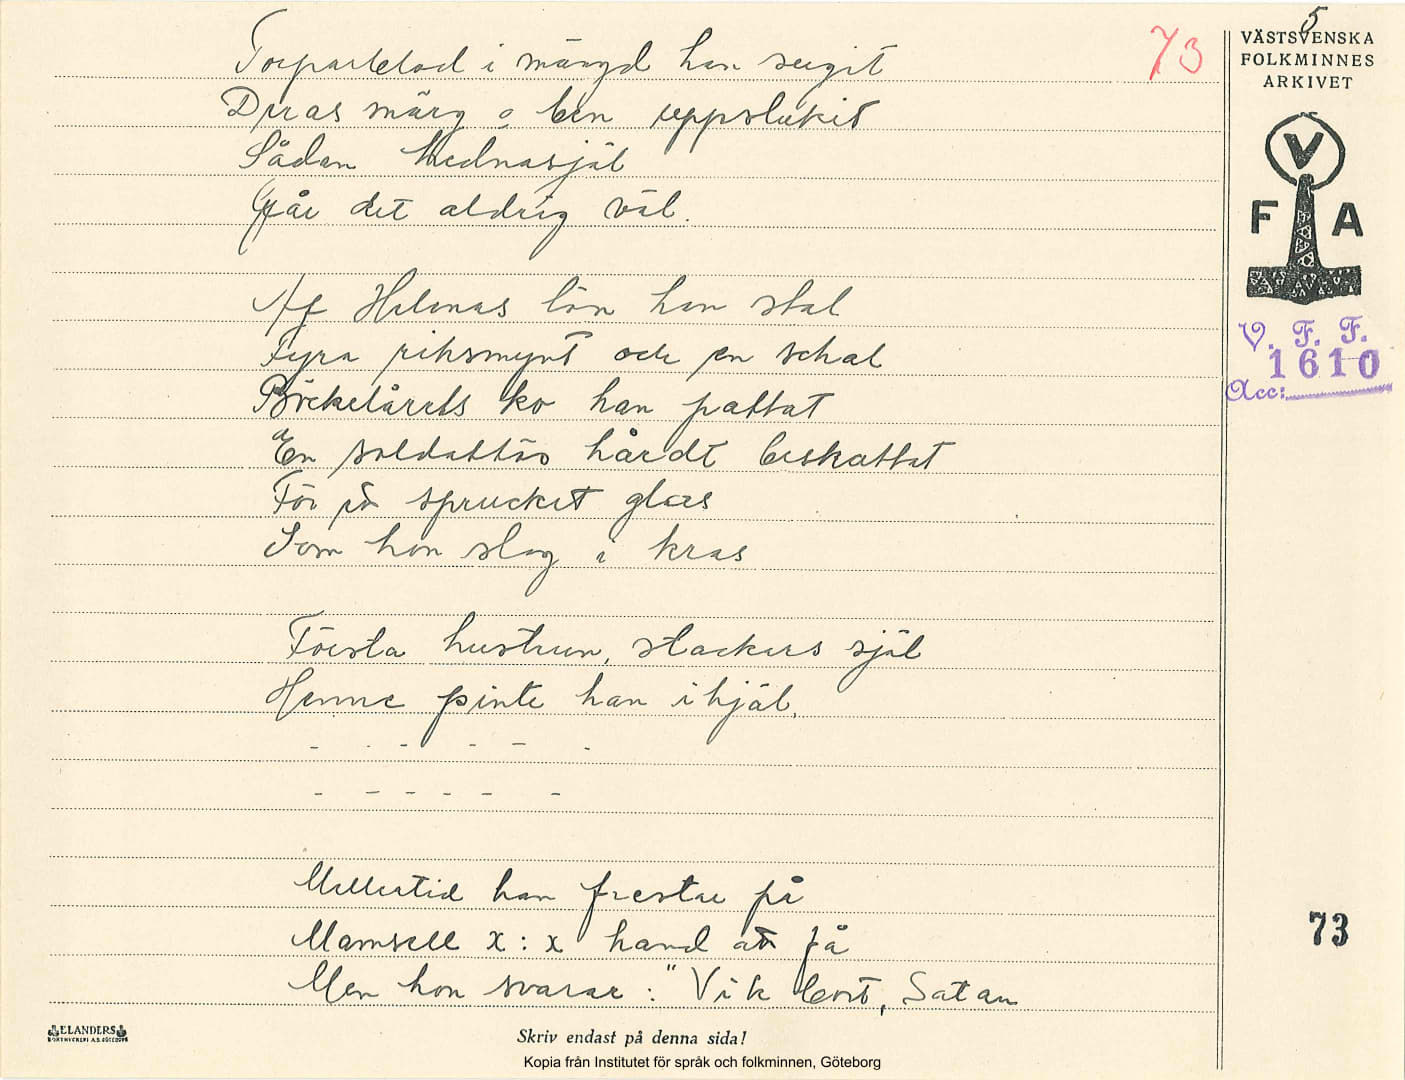 5
73
VÄSTSVENSKA
FOLKMINNES
ARKIVET
V
F A
V. F. F.
1610
Acc:
i mängd han sugit
Deras märg o ben uppslukit
Sådan hednasjäl
Går det aldrig väl.
Af Helenas lön han stal
Fyra riksmynt och en schal
ko han pattat
En soldattös hårdt beskattat
För ett sprucket glas
Som hon slog i kras
Första hustrun, stackars själ
Henne pinte han ihjäl,
- - - - - -
- - - - - -
Mellertid han frestar på
Mamsell x : x hand att få
Men hon svarar : "Vik bort, Satan
73
ELANDERS
BOKTRYCKERI A.B. GÖTEBORG
Skriv endast på denna sida!
Kopia från Institutet för språk och folkminnen, Göteborg